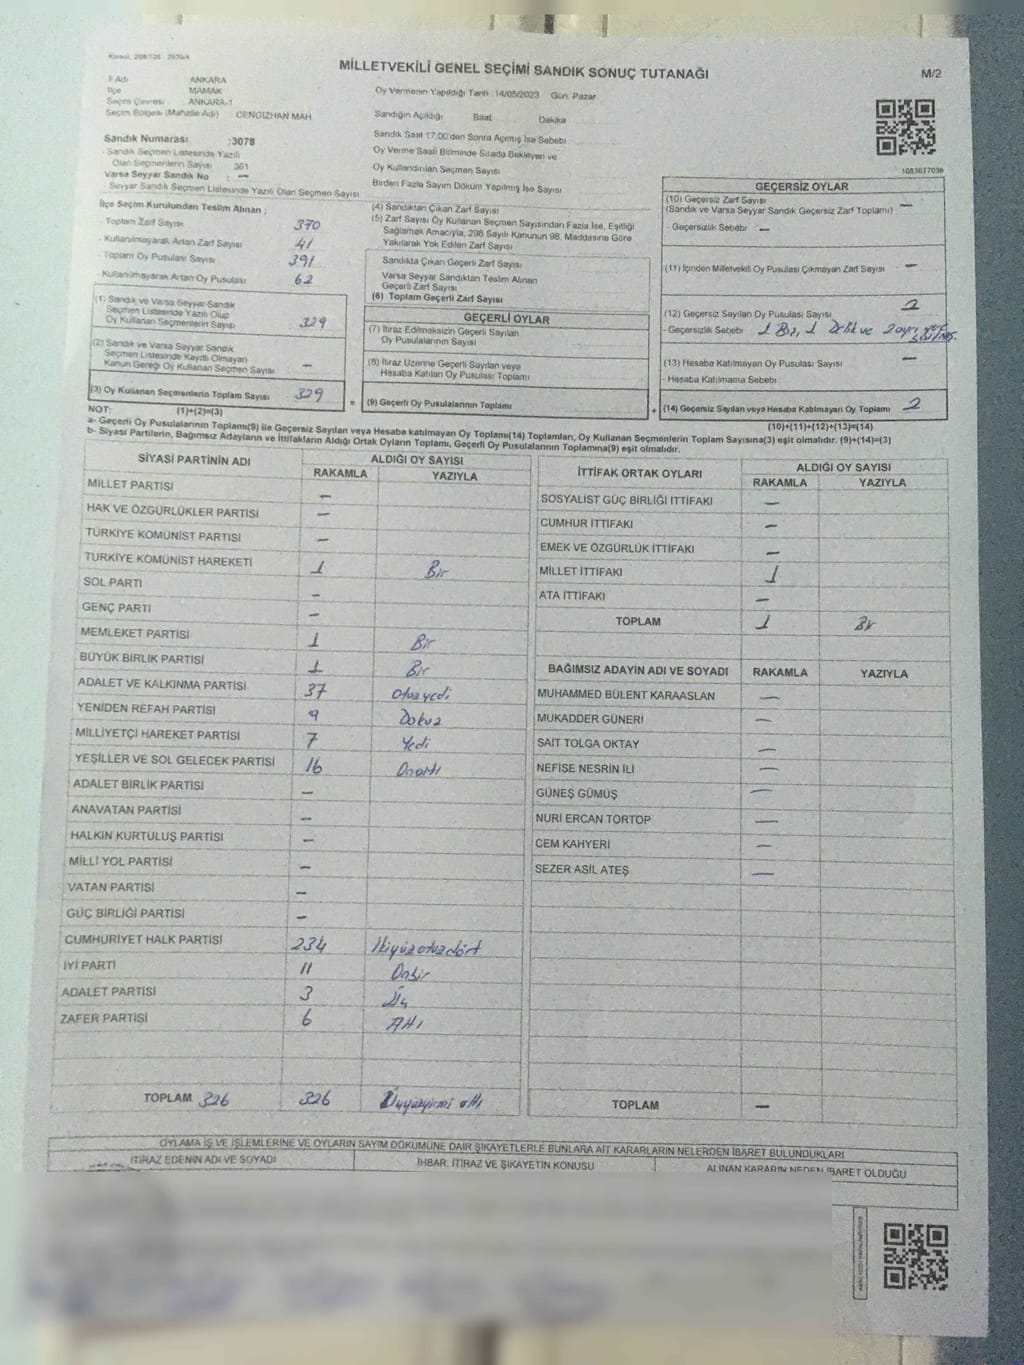 MİLLETVEKİLİ GENEL SEÇİMİ SANDIK SONUÇ TUTANAĞI
M/2
İl Adı ANKARA
İlçe MAMAK
Seçim Çevresi ANKARA-1
Seçim Bölgesi (Mahalle Adı) CENGİZHAN MAH
Oy Vermenin Yapıldığı Tarih 14/05/2023 Gün Pazar
Sandığın Açıldığı Saat Dakika
Sandık Saat 17.00'den Sonra Açılmış İse Sebebi
Oy Verme Saati Bitiminde Sırada Bekleyen ve
Oy Kullandırılan Seçmen Sayısı
Birden Fazla Sayım Döküm Yapılmış İse Sayısı
Sandık Numarası :3078
- Sandık Seçmen Listesinde Yazılı
Olan Seçmenlerin Sayısı 361
Varsa Seyyar Sandık No : —
- Seyyar Sandık Seçmen Listesinde Yazılı Olan Seçmen Sayısı
İlçe Seçim Kurulundan Teslim Alınan ;
- Toplam Zarf Sayısı 370
- Kullanılmayarak Artan Zarf Sayısı 41
- Toplam Oy Pusulası Sayısı 391
- Kullanılmayarak Artan Oy Pusulası 62
(1) Sandık ve Varsa Seyyar Sandık
Seçmen Listesinde Yazılı Olup
Oy Kullanan Seçmenlerin Sayısı 329
(2) Sandık ve Varsa Seyyar Sandık
Seçmen Listesinde Kayıtlı Olmayan
Kanun Gereği Oy Kullanan Seçmen Sayısı —
(3) Oy Kullanan Seçmenlerin Toplam Sayısı 329
(4) Sandıktan Çıkan Zarf Sayısı
(5) Zarf Sayısı Oy Kullanan Seçmen Sayısından Fazla İse, Eşitliği
Sağlamak Amacıyla, 298 Sayılı Kanunun 98. Maddesine Göre
Yakılarak Yok Edilen Zarf Sayısı
Sandıkta Çıkan Geçerli Zarf Sayısı
Varsa Seyyar Sandıktan Teslim Alınan
Geçerli Zarf Sayısı
(6) Toplam Geçerli Zarf Sayısı
GEÇERLİ OYLAR
(7) İtiraz Edilmeksizin Geçerli Sayılan
Oy Pusulalarının Sayısı
(8) İtiraz Üzerine Geçerli Sayılan veya
Hesaba Katılan Oy Pusulası Toplamı
= (9) Geçerli Oy Pusulalarının Toplamı
1083677036
GEÇERSİZ OYLAR
(10) Geçersiz Zarf Sayısı
(Sandık ve Varsa Seyyar Sandık Geçersiz Zarf Toplamı) —
- Geçersizlik Sebebi —
(11) İçinden Milletvekili Oy Pusulası Çıkmayan Zarf Sayısı —
(12) Geçersiz Sayılan Oy Pusulası Sayısı 2
- Geçersizlik Sebebi 1 Bız, 1 ve 2 ayrı
(13) Hesaba Katılmayan Oy Pusulası Sayısı —
- Hesaba Katılmama Sebebi
+ (14) Geçersiz Sayılan veya Hesaba Katılmayan Oy Toplamı 2
NOT: (1)+(2)=(3)
(10)+(11)+(12)+(13)=(14)
a- Geçerli Oy Pusulalarının Toplamı(9) ile Geçersiz Sayılan veya Hesaba katılmayan Oy Toplamı(14) Toplamları, Oy Kullanan Seçmenlerin Toplam Sayısına(3) eşit olmalıdır. (9)+(14)=(3)
b- Siyasi Partilerin, Bağımsız Adayların ve İttifakların Aldığı Ortak Oyların Toplamı, Geçerli Oy Pusulalarının Toplamına(9) eşit olmalıdır.
SİYASİ PARTİNİN ADI ALDIĞI OY SAYISI
RAKAMLA YAZIYLA
MİLLET PARTİSİ —
HAK VE ÖZGÜRLÜKLER PARTİSİ —
TÜRKİYE KOMÜNİST PARTİSİ —
TÜRKİYE KOMÜNİST HAREKETİ 1 Bir
SOL PARTİ —
GENÇ PARTİ —
MEMLEKET PARTİSİ 1 Bir
BÜYÜK BİRLİK PARTİSİ 1 Bir
ADALET VE KALKINMA PARTİSİ 37 otuzyedi
YENİDEN REFAH PARTİSİ 9 Dokuz
MİLLİYETÇİ HAREKET PARTİSİ 7 Yedi
YEŞİLLER VE SOL GELECEK PARTİSİ 16 Onaltı
ADALET BİRLİK PARTİSİ —
ANAVATAN PARTİSİ —
HALKIN KURTULUŞ PARTİSİ —
MİLLİ YOL PARTİSİ —
VATAN PARTİSİ —
GÜÇ BİRLİĞİ PARTİSİ —
CUMHURİYET HALK PARTİSİ 234 İkiyüzotuzdört
İYİ PARTİ 11 Onbir
ADALET PARTİSİ 3 Üç
ZAFER PARTİSİ 6 Altı
TOPLAM 326 326 Üçyüzyirmi altı
İTTİFAK ORTAK OYLARI ALDIĞI OY SAYISI
RAKAMLA YAZIYLA
SOSYALİST GÜÇ BİRLİĞİ İTTİFAKI —
CUMHUR İTTİFAKI —
EMEK VE ÖZGÜRLÜK İTTİFAKI —
MİLLET İTTİFAKI 1
ATA İTTİFAKI —
TOPLAM 1 Bir
BAĞIMSIZ ADAYIN ADI VE SOYADI RAKAMLA YAZIYLA
MUHAMMED BÜLENT KARAASLAN —
MUKADDER GÜNERİ —
SAİT TOLGA OKTAY —
NEFİSE NESRİN İLİ —
GÜNEŞ GÜMÜŞ —
NURİ ERCAN TORTOP —
CEM KAHYERİ —
SEZER ASİL ATEŞ —
TOPLAM —
OYLAMA İŞ VE İŞLEMLERİNE VE OYLARIN SAYIM DÖKÜMÜNE DAİR ŞİKAYETLERLE BUNLARA AİT KARARLARIN NELERDEN İBARET BULUNDUKLARI
İTİRAZ EDENİN ADI VE SOYADI İHBAR, İTİRAZ VE ŞİKAYETİN KONUSU ALINAN KARARIN NEDEN İBARET OLDUĞU